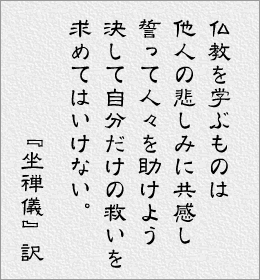 仏教を学ぶものは
他人の悲しみに共感し
誓って人々を助けよう
決して自分だけの救いを
求めてはいけない。
『坐禅儀』訳